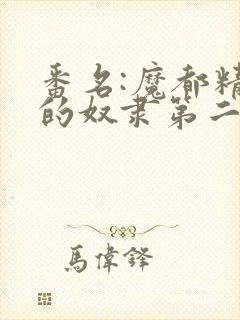 番名:魔都精
的奴隶第二
馬偉鋒